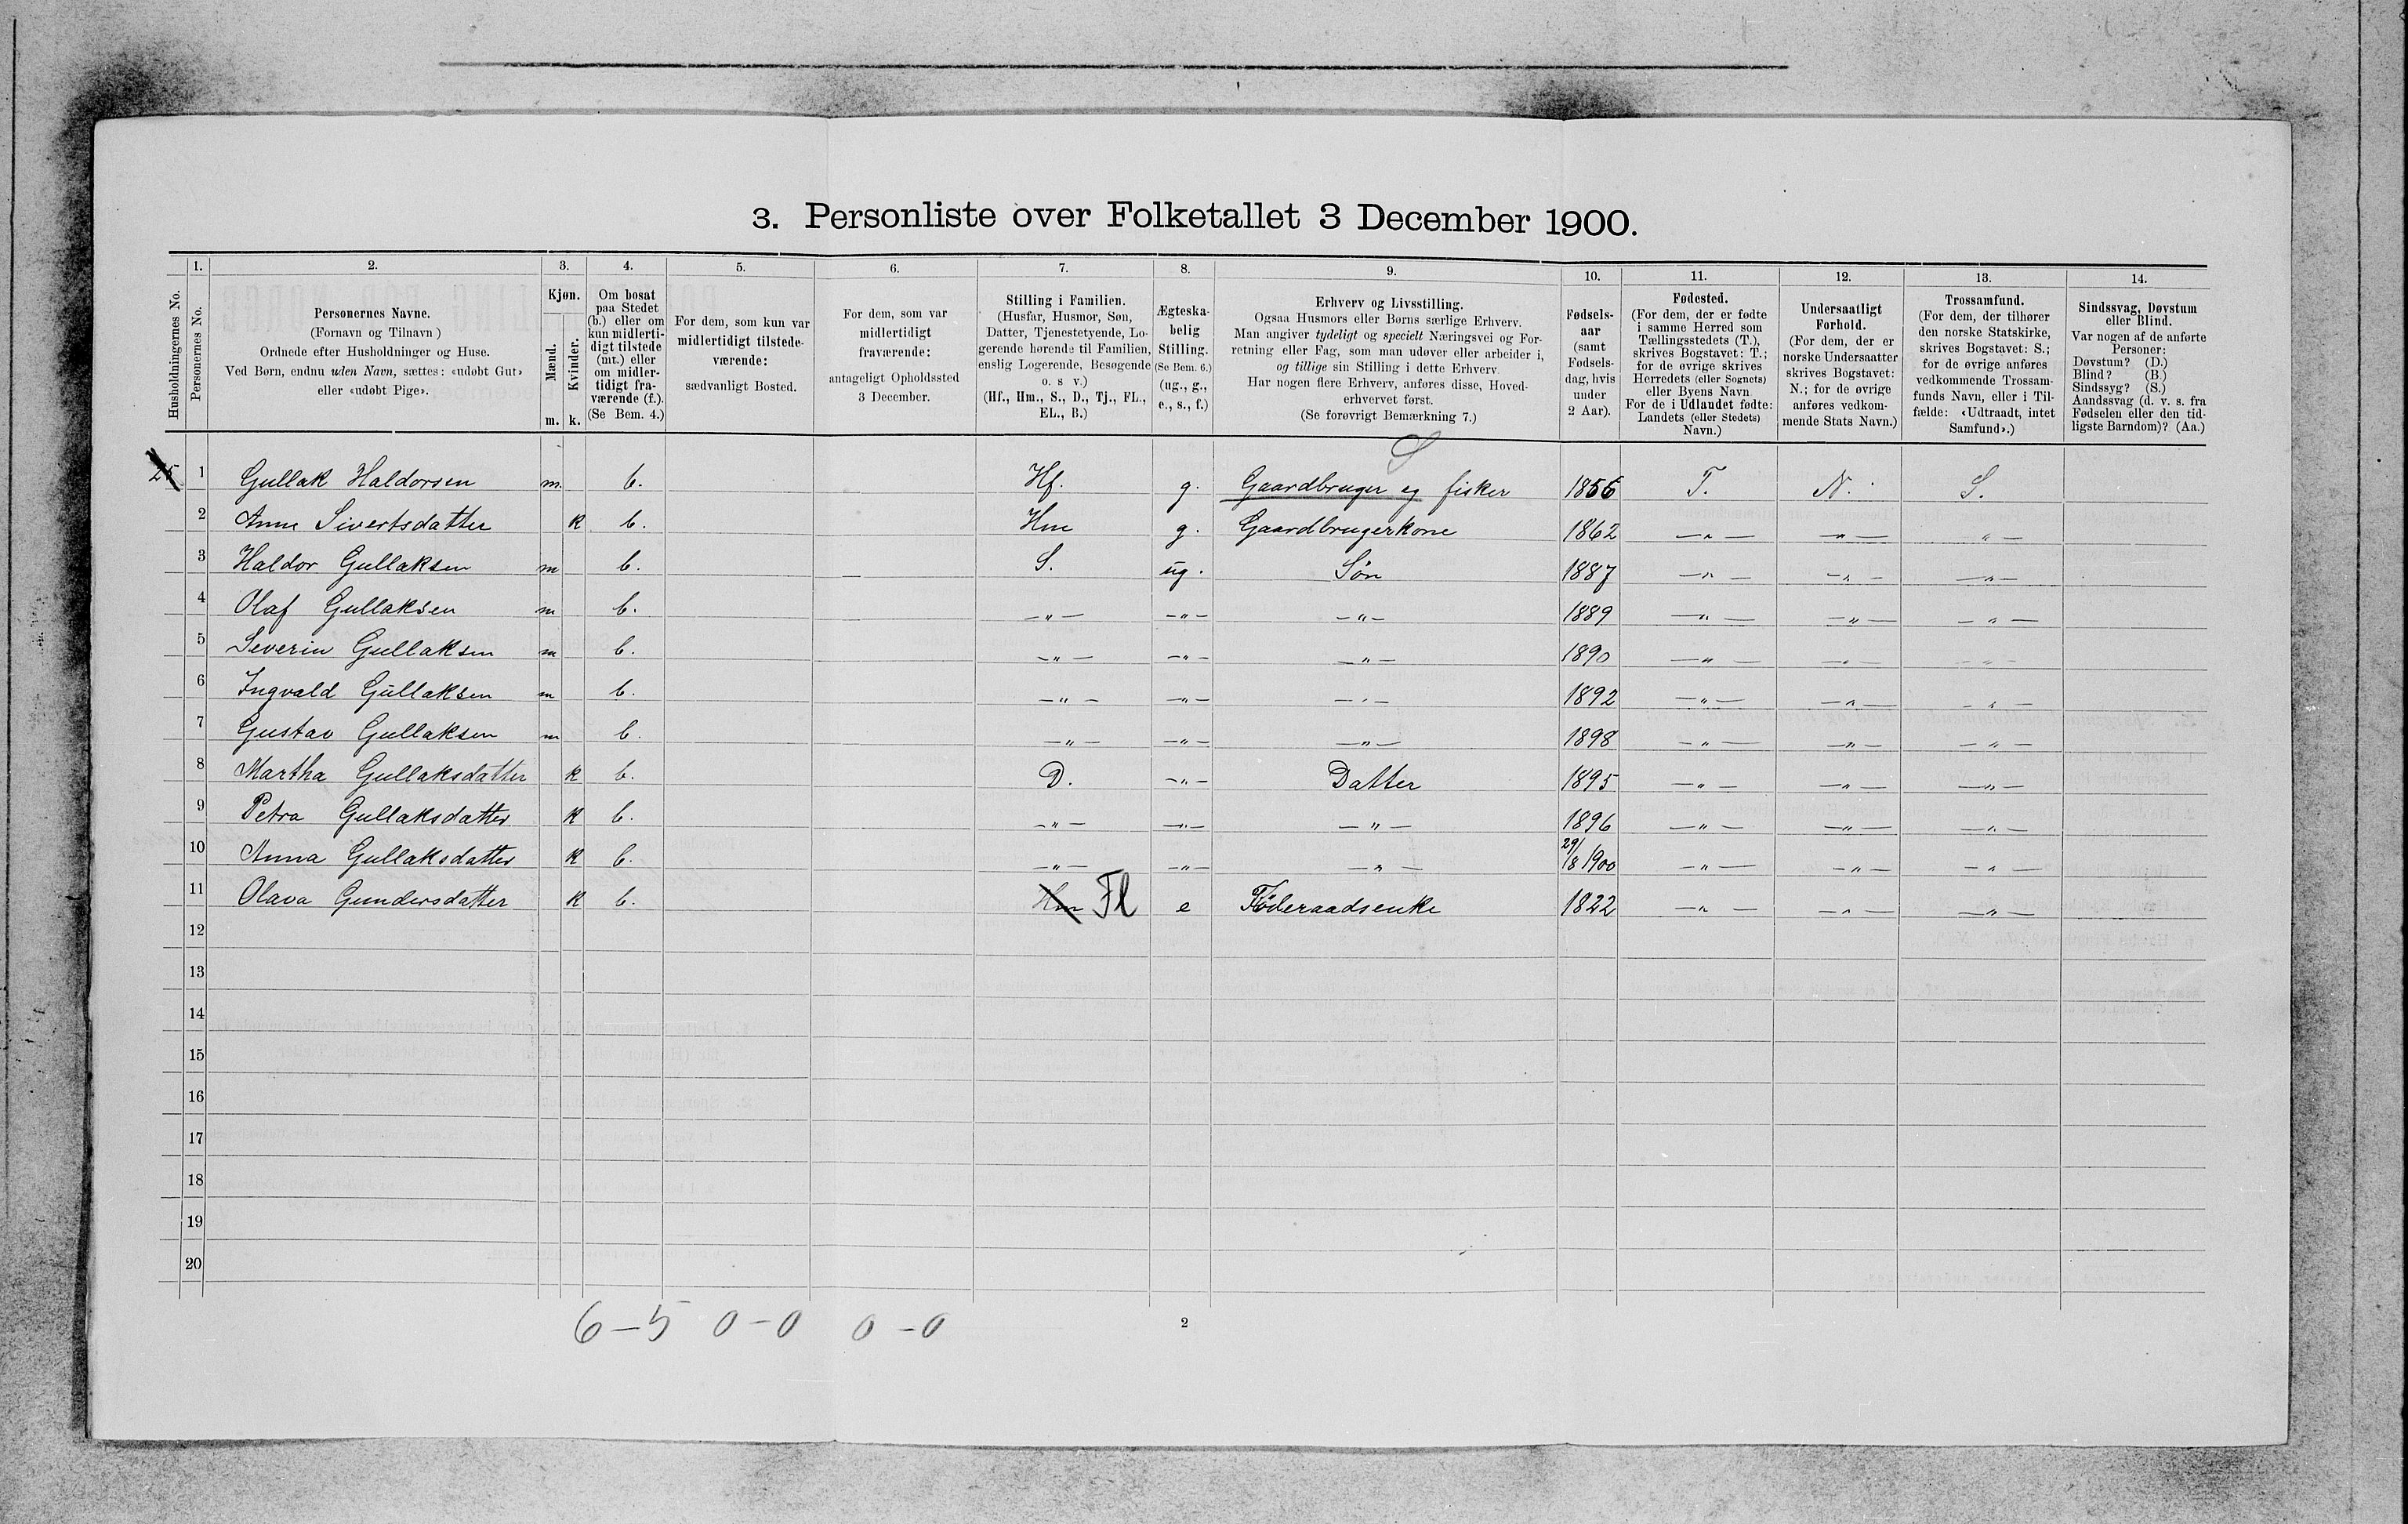 3. Personliste over Folketallet 3 December 1900.
1. 2. 3. 4. 5. 6. 7. 8. 9. 10. 11. 12. 13. 14.
Husholdningernes No.
Personernes No.
Personernes Navne.
(Fornavn og Tilnavn)
Ordnede efter Husholdninger og Huse.
Ved Børn, endnu uden Navn, sættes: «udøbt Gut»
eller «udøbt Pige».
Kjøn.
Mænd.
Kvinder.
m. k.
Om bosat
paa Stedet
(b.) eller om
kun midlerti-
digt tilstede
(mt.) eller
om midler-
tidigt fra-
værende (f.).
(Se Bem. 4.)
For dem, som kun var
midlertidigt tilstede-
værende:
sædvanligt Bosted.
For dem, som var
midlertidigt
fraværende:
antageligt Opholdssted
3 December.
Stilling i Familien.
(Husfar, Husmor, Søn,
Datter, Tjenestetyende, Lo-
gerende hørende til Familien,
enslig Logerende, Besøgende
o. s v.)
(Hf., Hm., S., D., Tj., FL.,
EL., B.)
Ægteska-
belig
Stilling.
(Se Bem. 6.)
(ug., g.,
e., s., f.)
Erhverv og Livsstilling.
Ogsaa Husmors eller Børns særlige Erhverv.
Man angiver tydeligt og specielt Næringsvei og For-
retning eller Fag, som man udøver eller arbeider i,
og tillige sin Stilling i dette Erhverv.
Har nogen flere Erhverv, anføres disse, Hoved-
erhvervet først.
(Se forøvrigt Bemærkning 7.)
Fødsels-
aar
(samt
Fødsels-
dag, hvis
under
2 Aar).
Fødested.
(For dem, der er fødte
i samme Herred som
Tællingsstedets (T.),
skrives Bogstavet: T.;
for de øvrige skrives
Herredets (eller Sognets)
eller Byens Navn.
For de i Udlandet fødte:
Landets (eller Stedets)
Navn.)
Undersaatligt
Forhold.
(For dem, der er
norske Undersaatter
skrives Bogstavet:
N.; for de øvrige
anføres vedkom-
mende Stats Navn.)
Trossamfund.
(For dem, der tilhører
den norske Statskirke,
skrives Bogstavet: S.;
for de øvrige anføres
vedkommende Trossam-
funds Navn, eller i Til-
fælde: «Udtraadt, intet
Samfund».)
Sindssvag, Døvstum
eller Blind.
Var nogen af de anførte
Personer:
Døvstum? (D.)
Blind? (B.)
Sindssyg? (S.)
Aandssvag (d. v. s. fra
Fødselen eller den tid-
ligste Barndom)? (Aa.)
S
1 Gullak Haldorsen m. b. Hf. g. Gaardbruger og fisker 1856 T. N. S.
2 Anne Sivertsdatter k b. Hm g. Gaardbrugerkone 1862 —"— —"— —"—
3 Haldor Gullaksen m b. S. ug. Søn 1887 —"— —"— —"—
4 Olaf Gullaksen m b. —"— —"— —"— 1889 —"— —"— —"—
5 Severin Gullaksen m b. —"— —"— —"— 1890 —"— —"— —"—
6 Ingvald Gullaksen m b. —"— —"— —"— 1892 —"— —"— —"—
7 Gustav Gullaksen m b. —"— —"— —"— 1898 —"— —"— —"—
8 Martha Gullaksdatter k b. D. —"— Datter 1895 —"— —"— —"—
9 Petra Gullaksdatter k b. —"— —"— —"— 1896 —"— —"— —"—
10 Anna Gullaksdatter k b. —"— —"— —"— 29/8 1900 —"— —"— —"—
11 Olava Gundersdatter k b. Hm Fl e Føderaadsenke 1822 —"— —"— —"—
12
13
14
15
16
17
18
19
20
6-5 0-0 0-0
2